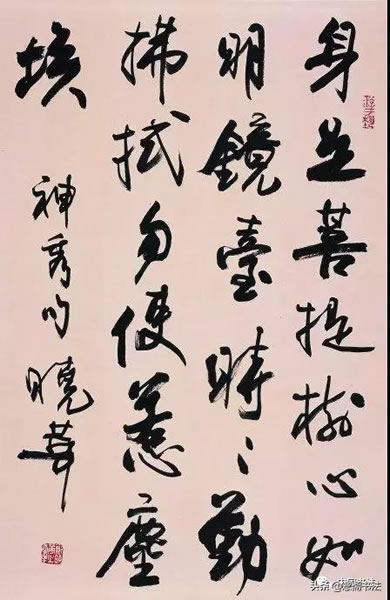 身是菩提樹心如
明鏡臺時々勤
拂拭勿使惹塵
埃
神秀句 曉
头条